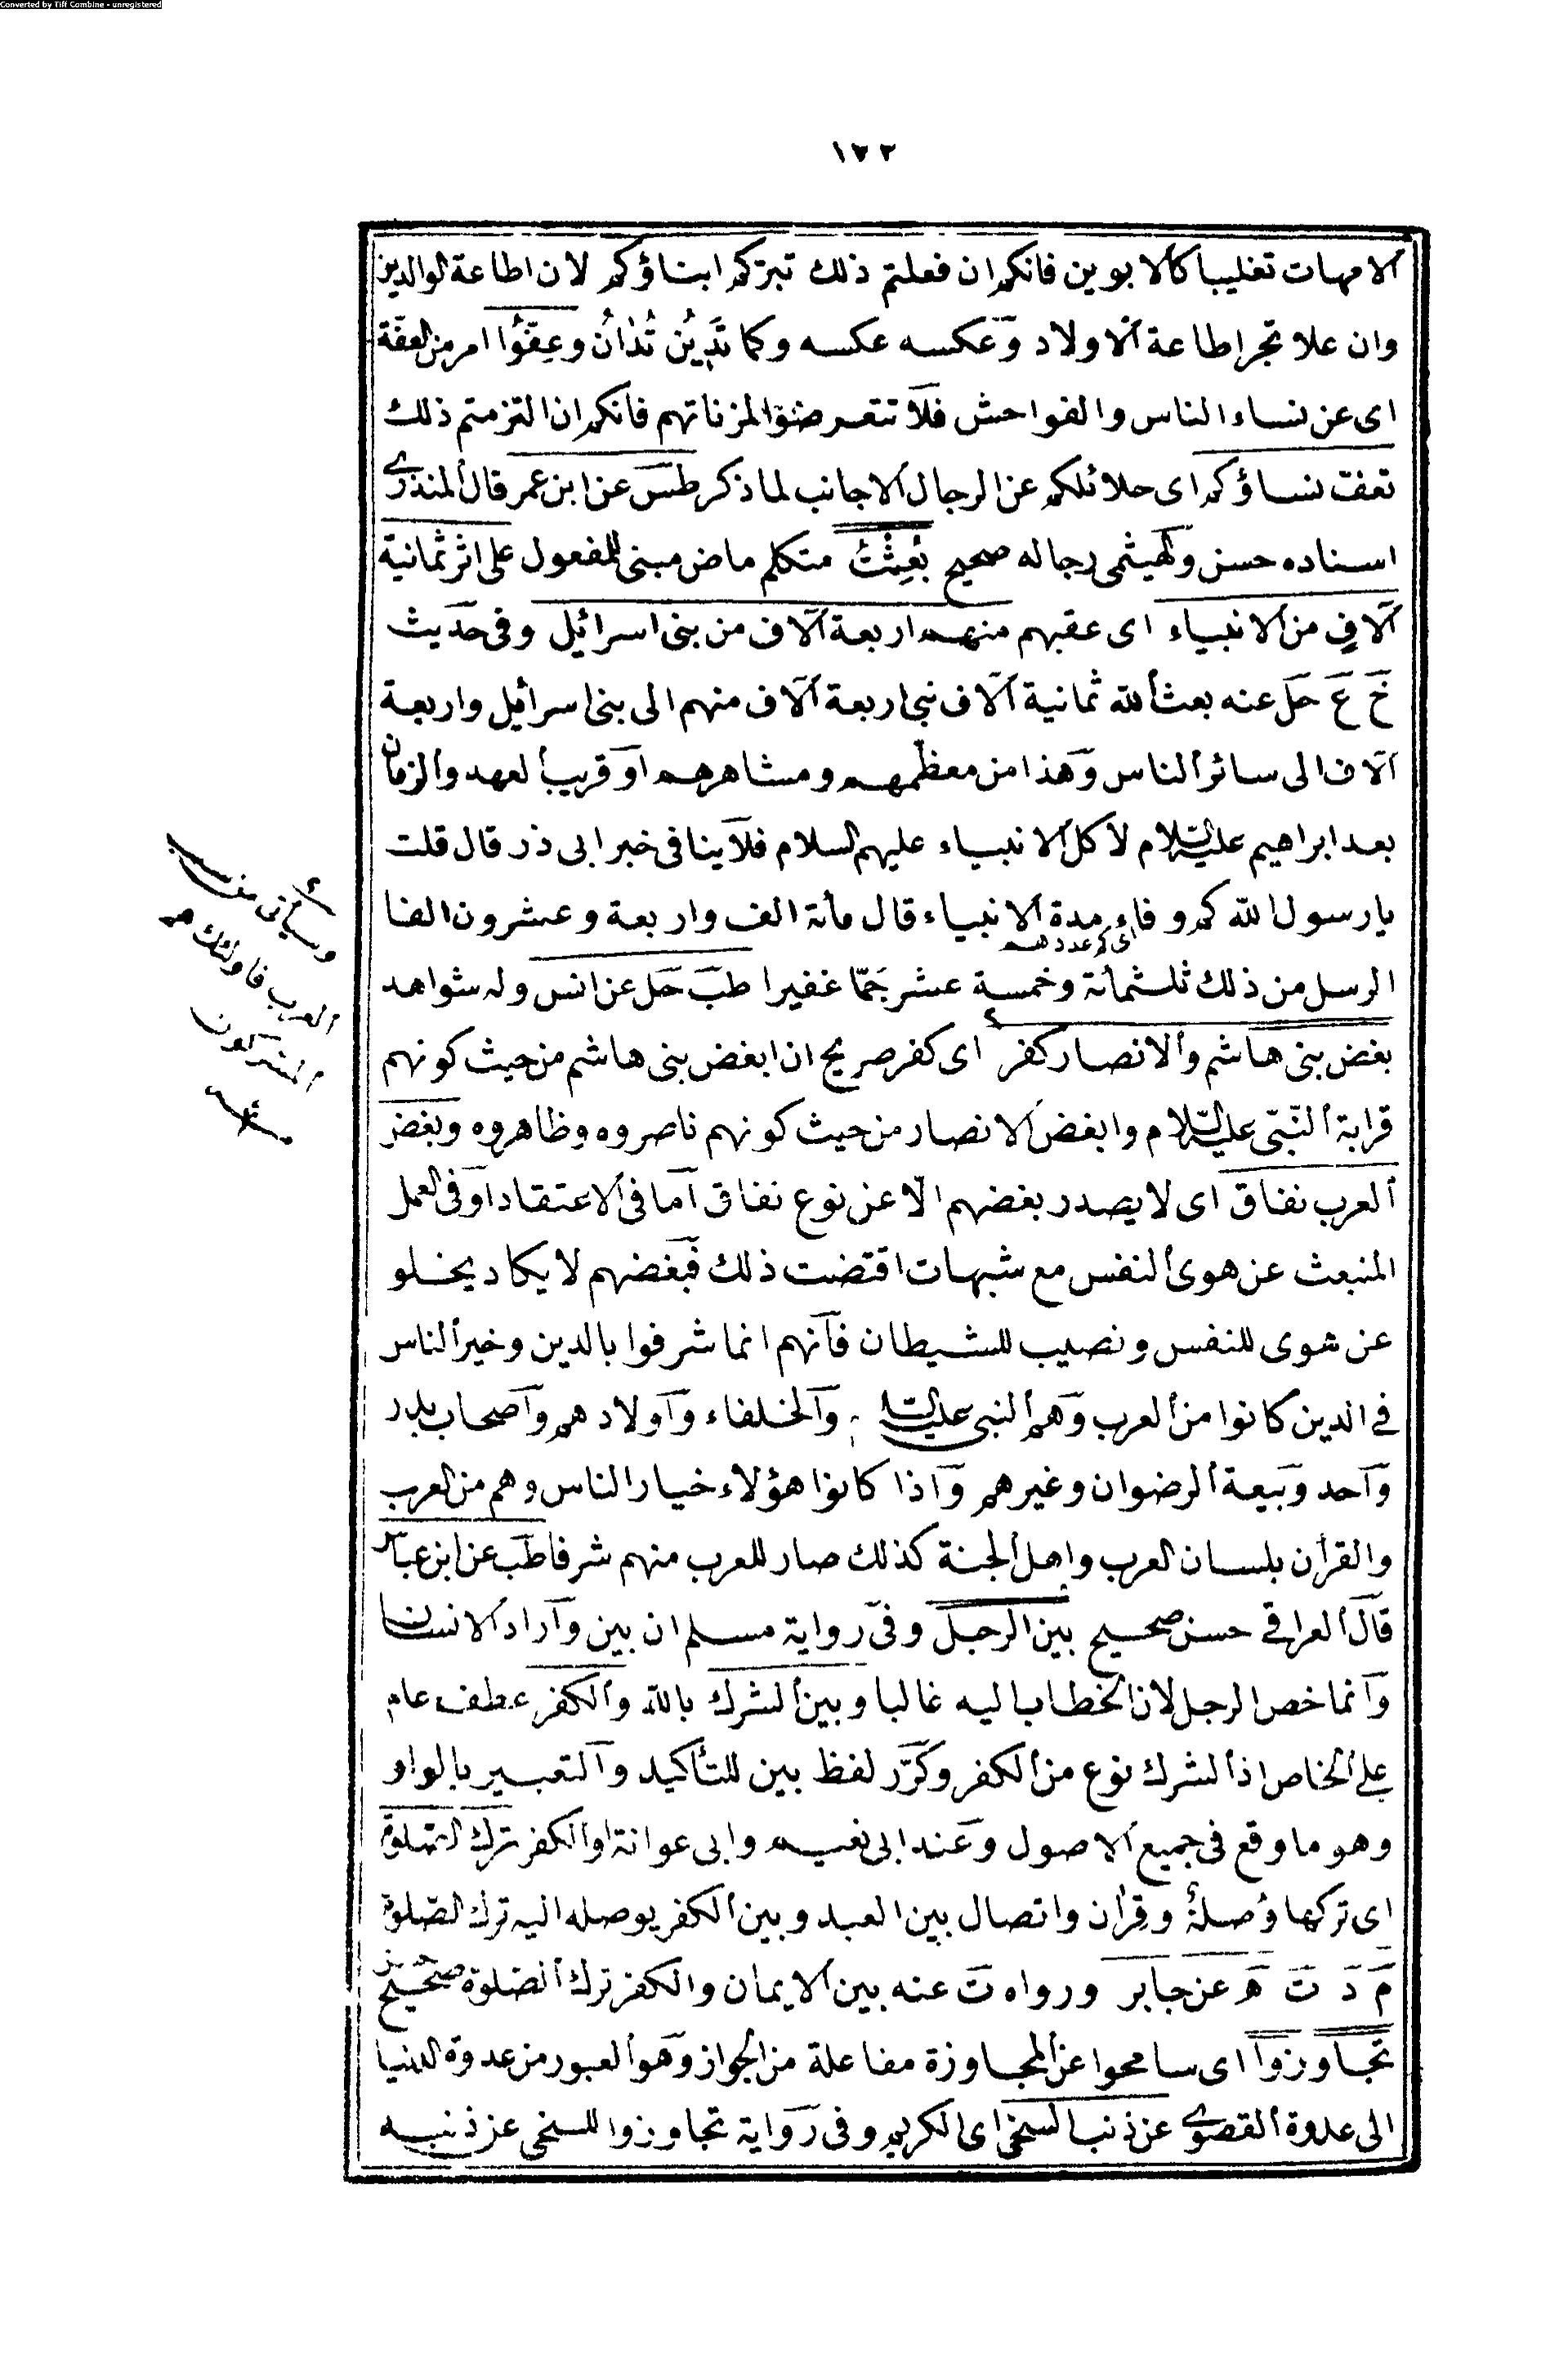 Converted by Tiff Combine - unregistered
١٣٣
الامهات تغليبا كالابوين فانكم ان فعلتم ذلك تبركم ابناؤكم لان اطاعة الوالدين
وان علا تجر اطاعة الاولاد وعكسه عكسه وكما تَدِينُ تُدَانُ وعِفُّوا امر من العفة
اى عن نساء الناس والفواحش فلا تتعرضوا لمزناتهم فانكم ان التزمتم ذلك
تعف نساؤكم اى حلائلكم عن الرجال الاجانب لما ذكر طس عن ابن عمر قال المنذرى
اسناده حسن والهيثمى رجاله صحيح بُعِثْتُ متكلم ماض مبنى للمفعول على اثر ثمانية
آلافٍ من الانبياء اى عقبهم منهم اربعة آلاف من بنى اسرائيل وفى حديث
خ ع حل عنه بعث الله ثمانية آلاف نبى اربعة آلاف منهم الى بنى اسرائيل واربعة
آلاف الى سائر الناس وهذا من معظمهم ومشاهرهم او قريب العهد والزمان
بعد ابراهيم عليه السلام لا كل الانبياء عليهم السلام فلا ينافى خبر ابى ذر قال قلت
يارسول الله كم وفاء مدة الانبياء قال مأة الف واربعة وعشرون الفا
اى كم عددهم
الرسل من ذلك ثلثمأة وخمسة عشر جَمّا غفيرا طب حل عن انس وله شواهد
بغض بنى هاشم والانصار كفر اى كفر صريح ان ابغض بنى هاشم من حيث كونهم
قرابة النّبىّ عليه السّلام وابغض الانصار من حيث كونهم ناصروه وظاهروه وبغض
العرب نفاق اى لا يصدر بغضهم الّا عن نوع نفاق اما فى الاعتقاد او فى العمل
المنبعث عن هوى النفس مع شبهات اقتضت ذلك فبغضهم لا يكاد يخلو
عن هوى للنفس ونصيب للشيطان فانهم انما شرفوا بالدين وخير الناس
فى الدين كانوا من العرب وهم النبى عليه السلام والخلفاء واولادهم واصحاب بدر
واحد وبيعة الرضوان وغيرهم واذا كانوا هؤلاء خيار الناس وهم من العرب
والقرأن بلسان العرب واهل الجنة كذلك صار للعرب منهم شرفا طب عن ابن عباس
قال العراقى حسن صحيح بين الرجل وفى رواية مسلم ان بين واراد الانسان
وانما خص الرجل لان الخطاب اليه غالبا وبين الشرك بالله والكفر عطف عام
على الخاص اذ الشرك نوع من الكفر وكرّر لفظ بين للتأكيد والتعبير بالواو
وهو ما وقع فى جميع الاصول وعند ابى نعيم وابى عوانة او الكفر ترك الصلوة
اى تركها وُصلةٌ وقِرأن واتصال بين العبد وبين الكفر يوصله اليه ترك الصّلوة
م د ت ه عن جابر ورواه ت عنه بين الايمان والكفر ترك الصّلوة حسن صحيح
تجاوزوا اى سامحوا عن المجاوزة مفاعلة من الجواز وهو العبور من عدوة الدنيا
الى عدوة القصوى عن ذنب السخى اى الكريم وفى رواية تجاوزوا للسخى عن ذنبه
العرب فاولئك هم
المشركون